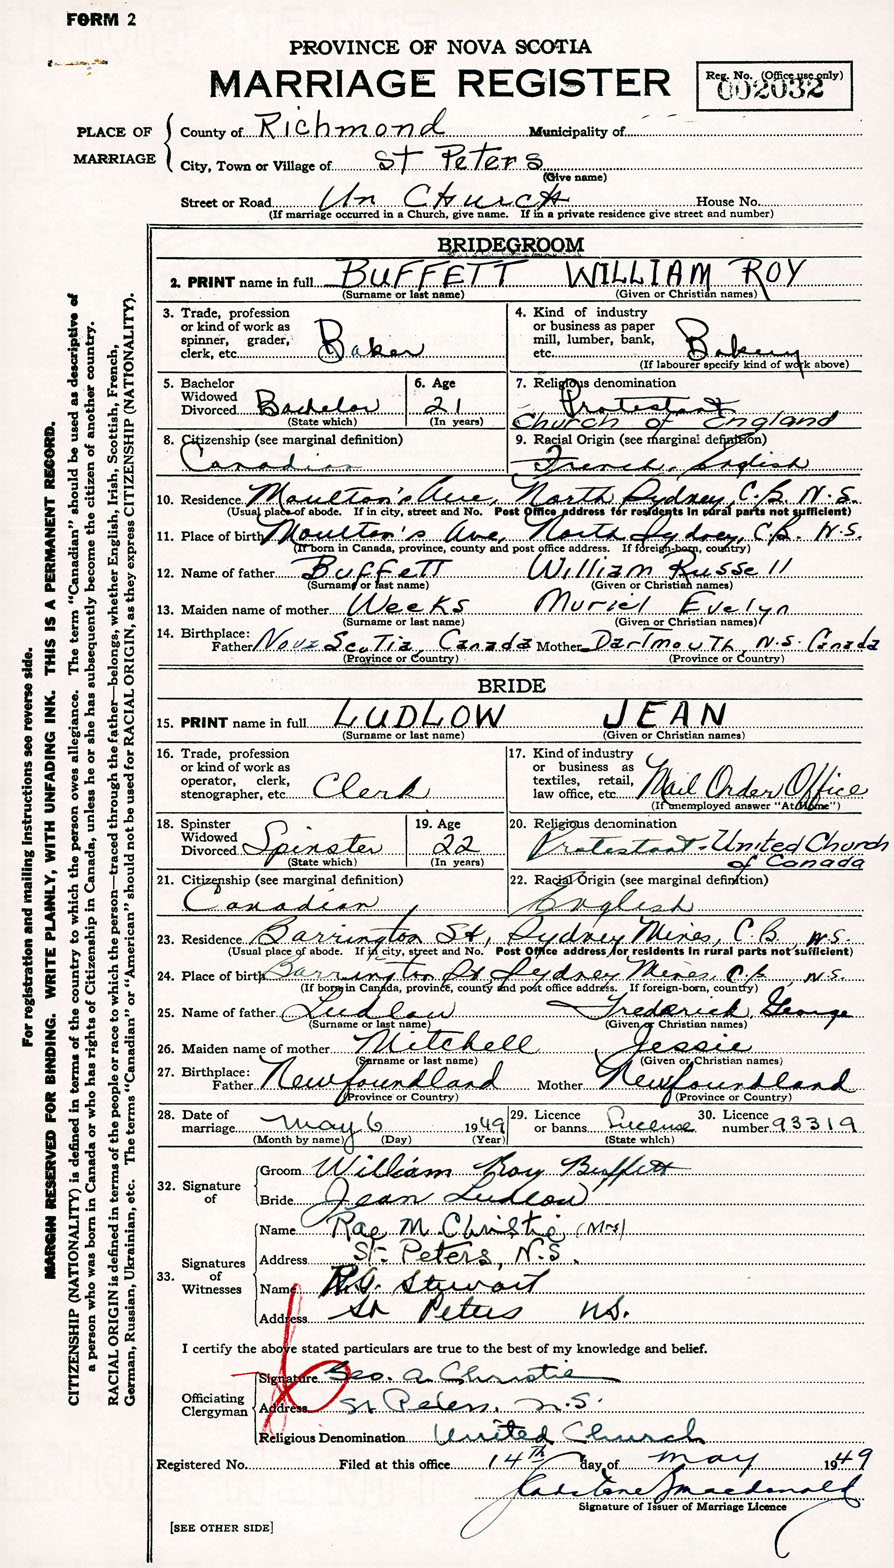 FORM 2
PROVINCE OF NOVA SCOTIA
MARRIAGE REGISTER
Reg. No. (Office use only)
002032
PLACE OF MARRIAGE
County of Richmond Municipality of
City, Town or Village of St Peters
(Give name)
Street or Road Un Church House No.
(If marriage occurred in a Church, give name. If in a private residence give street and number)
BRIDEGROOM
2. PRINT name in full BUFFETT WILLIAM ROY
(Surname or last name) (Given or Christian names)
3. Trade, profession or kind of work as spinner, grader, clerk, etc. Baker
4. Kind of industry or business as paper mill, lumber, bank, etc. Bakery
(If labourer specify kind of work above)
5. Bachelor Widowed Divorced Bachelor
(State which)
6. Age 21
(In years)
7. Religious denomination Protestant
Church of England
8. Citizenship (see marginal definition)
Canadian
9. Racial Origin (see marginal definition)
French, English
10. Residence Moulton's Ave, North Sydney, C.B. N.S.
(Usual place of abode. If in city, street and No. Post Office address for residents in rural parts not sufficient)
11. Place of birth Moulton's Ave, North Sydney, C.B. N.S.
(If born in Canada, province, county and post office address. If foreign-born, country)
12. Name of father Buffett William Russell
(Surname or last name) (Given or Christian names)
13. Maiden name of mother Weeks Muriel Evelyn
(Surname or last name) (Given or Christian names)
14. Birthplace:
Father Nova Scotia, Canada Mother Dartmouth, N.S. Canada
(Province or Country) (Province or Country)
BRIDE
15. PRINT name in full LUDLOW JEAN
(Surname or last name) (Given or Christian names)
16. Trade, profession or kind of work as operator, clerk, stenographer, etc. Clerk
17. Kind of industry or business as textiles, retail, law office, etc. Mail Order Office
(If unemployed answer "At Home")
18. Spinster Widowed Divorced Spinster
(State which)
19. Age 22
(In years)
20. Religious denomination
Protestant - United Church
of Canada
21. Citizenship (see marginal definition)
Canadian
22. Racial Origin (see marginal definition)
English
23. Residence Barrington St, Sydney Mines, C.B, N.S.
(Usual place of abode. If in city, street and No. Post Office address for residents in rural parts not sufficient)
24. Place of birth Barrington St Sydney Mines, C.B, N.S.
(If born in Canada, province, county and post office address. If foreign-born, country)
25. Name of father Ludlow Frederick George
(Surname or last name) (Given or Christian names)
26. Maiden name of mother Mitchell Jessie
(Surname or last name) (Given or Christian names)
27. Birthplace:
Father Newfoundland Mother Newfoundland
(Province or Country) (Province or Country)
28. Date of marriage May 6 1949
(Month by name) (Day) (Year)
29. Licence or banns License
(State which)
30. Licence number 93319
32. Signature of
Groom William Roy Buffett
Bride Jean Ludlow
33. Signatures of Witnesses
Name Rae M. Christie (Mrs)
Address St. Peters, N.S.
Name Stewart
Address St Peters N.S.
I certify the above stated particulars are true to the best of my knowledge and belief.
Officiating Clergyman
Signature Geo. A. Christie
Address St Peters, N.S.
Religious Denomination United Church
Registered No. Filed at this office 14th day of May 1949
Gladstone Macdonald
Signature of Issuer of Marriage Licence
[SEE OTHER SIDE]
For registration and mailing instructions see reverse side.
MARGIN RESERVED FOR BINDING. WRITE PLAINLY, WITH UNFADING INK. THIS IS A PERMANENT RECORD.
CITIZENSHIP (NATIONALITY) is defined in terms of the country to which the person owes allegiance. The term "Canadian" should be used as descriptive of
a person who was born in Canada or who has rights of Citizenship in Canada, unless he or she has subsequently become the citizen of another country.
RACIAL ORIGIN is defined in terms of the people or race to which the person—traced through the father—belongs, whether English, Irish, Scottish, French,
German, Russian, Ukrainian, etc. The terms "Canadian" or "American" should not be used for RACIAL ORIGIN, as they express CITIZENSHIP (NATIONALITY).